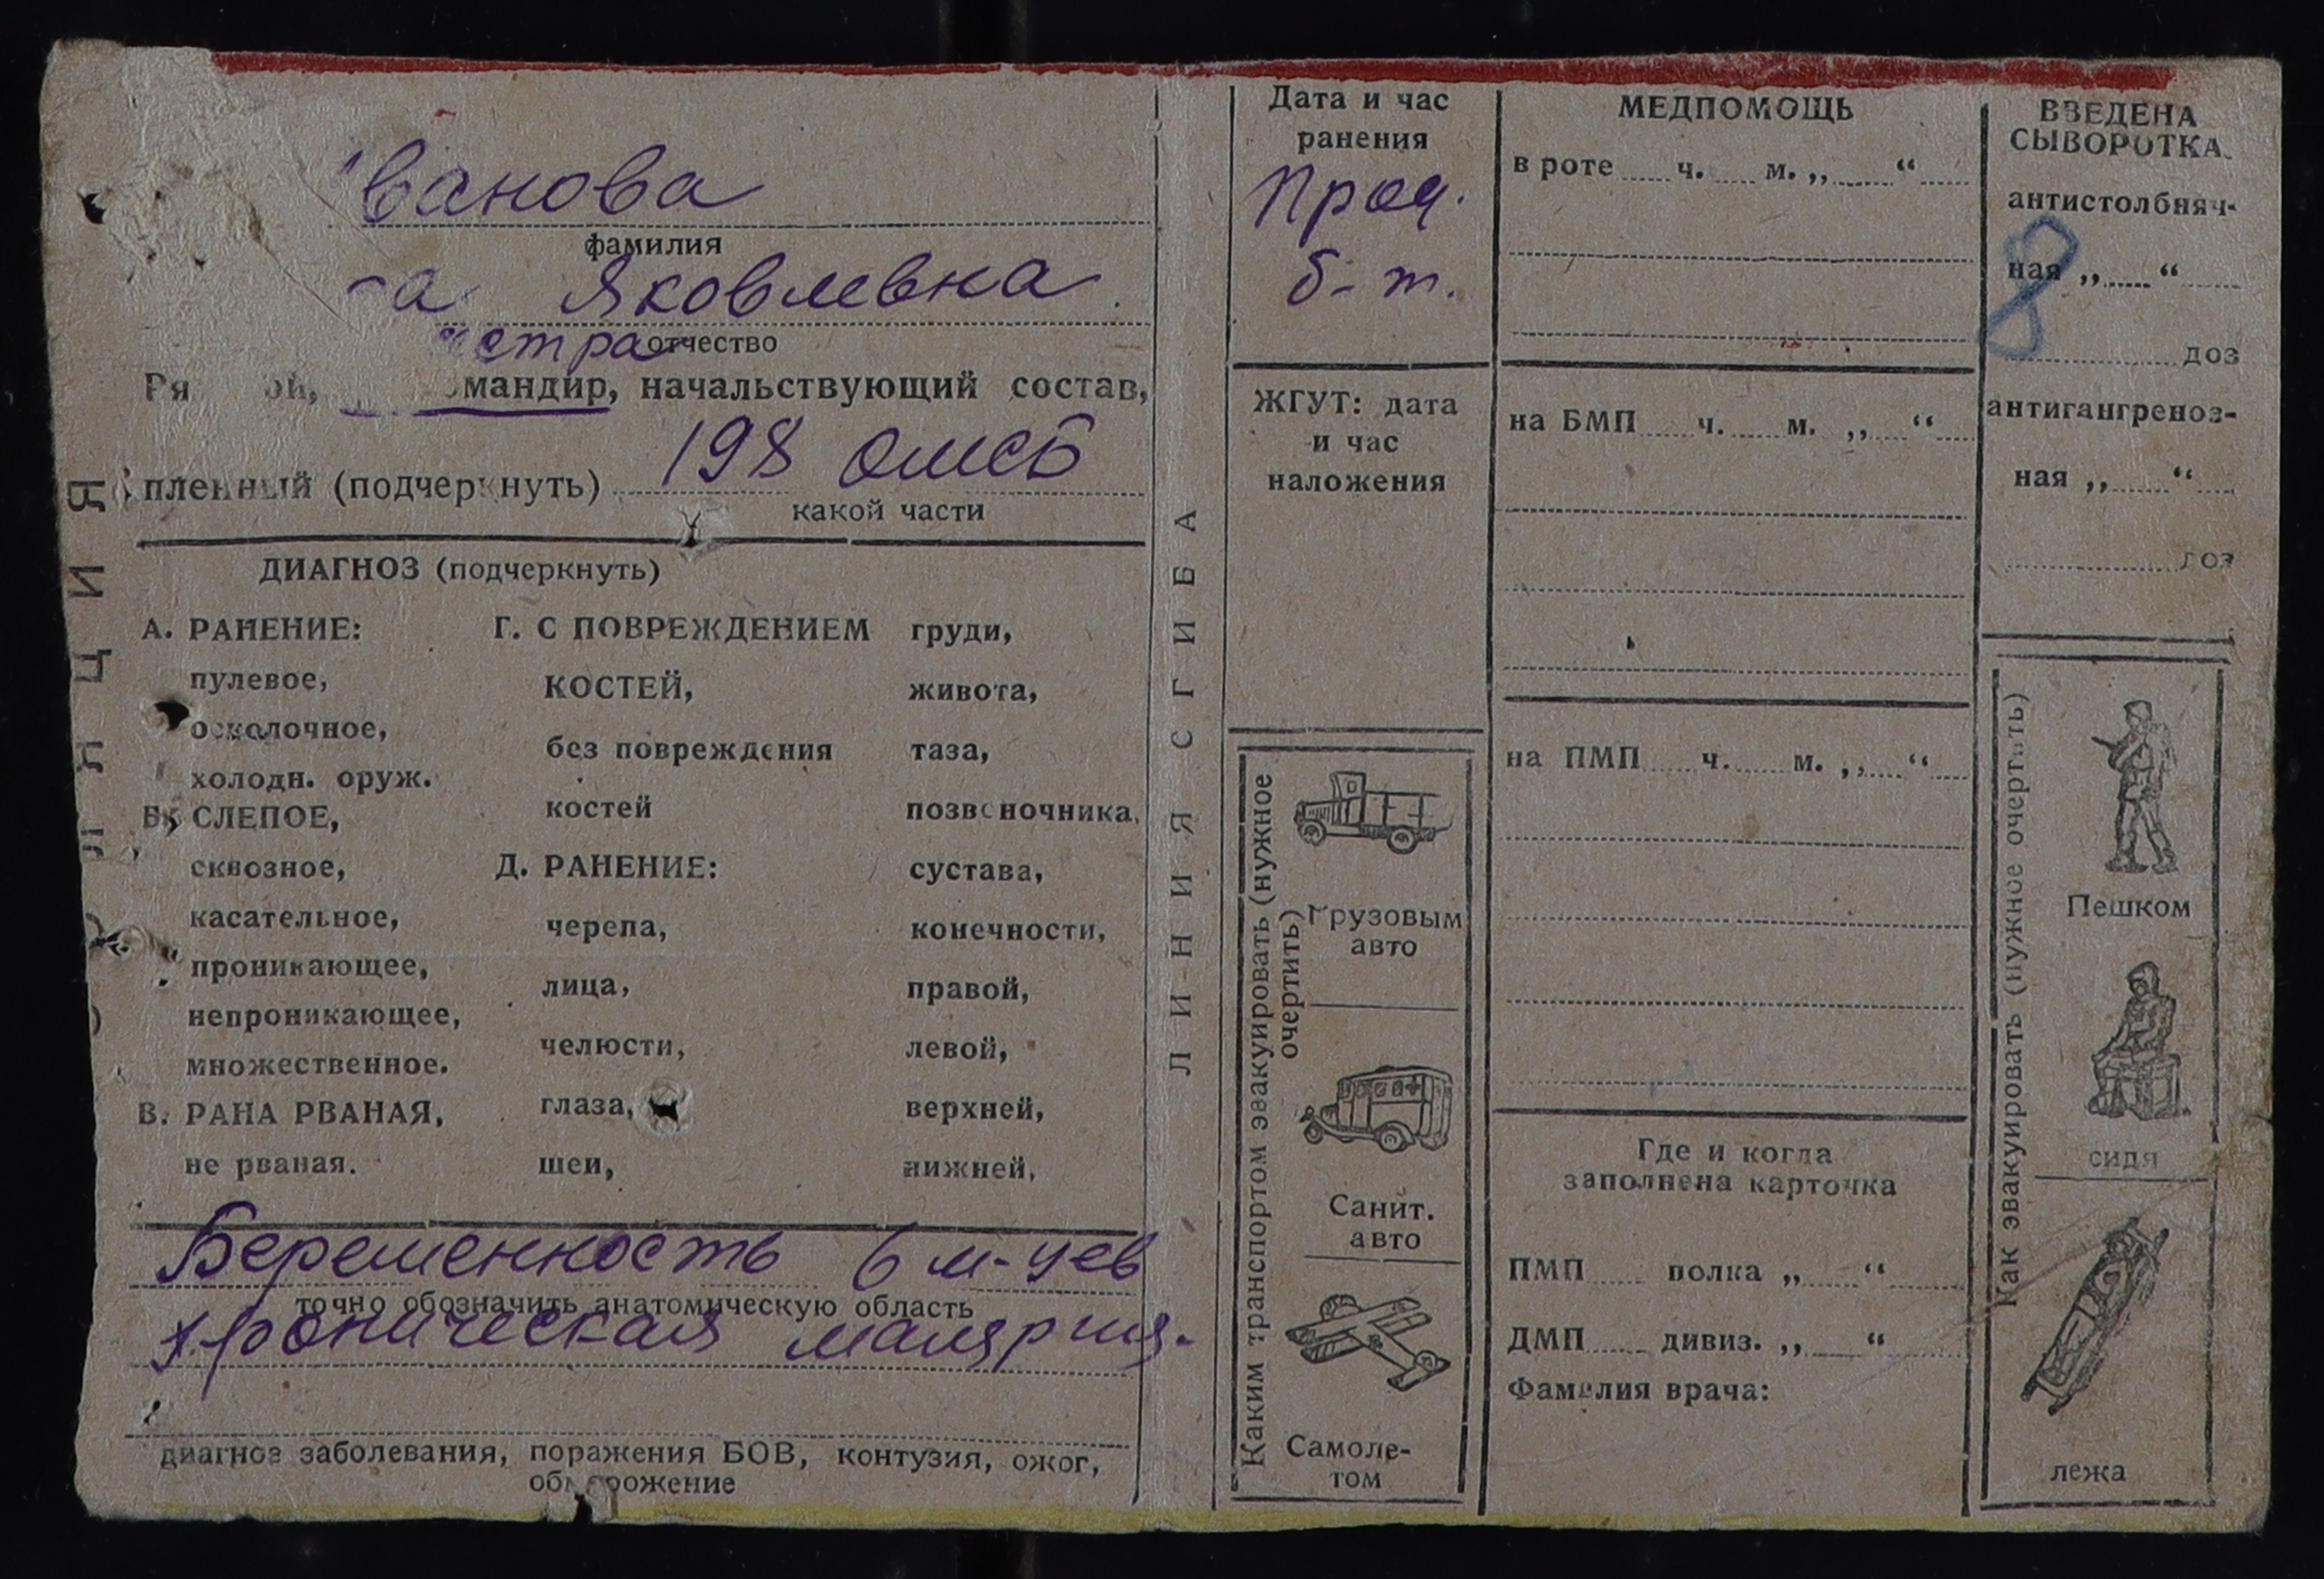 ванова
фамилия
а Яковлевна
стра отчество
Ря ой, мандир, начальствующий состав,
пленный (подчеркнуть) 198 омсб
какой части
ДИАГНОЗ (подчеркнуть)
А. РАНЕНИЕ:
пулевое,
осколочное,
холодн. оруж.
Б. СЛЕПОЕ,
сквозное,
касательное,
проникающее,
непроникающее,
множественное.
В. РАНА РВАНАЯ,
не рваная.
Г. С ПОВРЕЖДЕНИЕМ
КОСТЕЙ,
без повреждения
костей
Д. РАНЕНИЕ:
черепа,
лица,
челюсти,
глаза,
шеи,
груди,
живота,
таза,
позвоночника,
сустава,
конечности,
правой,
левой,
верхней,
нижней,
Беременность 6 м-цев
точно обозначить анатомическую область
хроническая малярия.
диагноз заболевания, поражения БОВ, контузия, ожог,
обморожение
ЛИНИЯ СГИБА
Дата и час
ранения
б-т.
ЖГУТ: дата
и час
наложения
Каким транспортом эвакуировать (нужное
очертить)
Грузовым
авто
Санит.
авто
Самоле-
том
МЕДПОМОЩЬ
в роте ч. м. „ “
на БМП ч. м. „ “
на ПМП ч. м. „ “
Где и когда
заполнена карточка
ПМП полка „ “
ДМП дивиз. „ “
Фамилия врача:
ВВЕДЕНА
СЫВОРОТКА
антистолбняч-
ная „ “
8
доз
антигангреноз-
ная „ “
доз
Как эвакуировать (нужное очертить)
Пешком
сидя
лежа